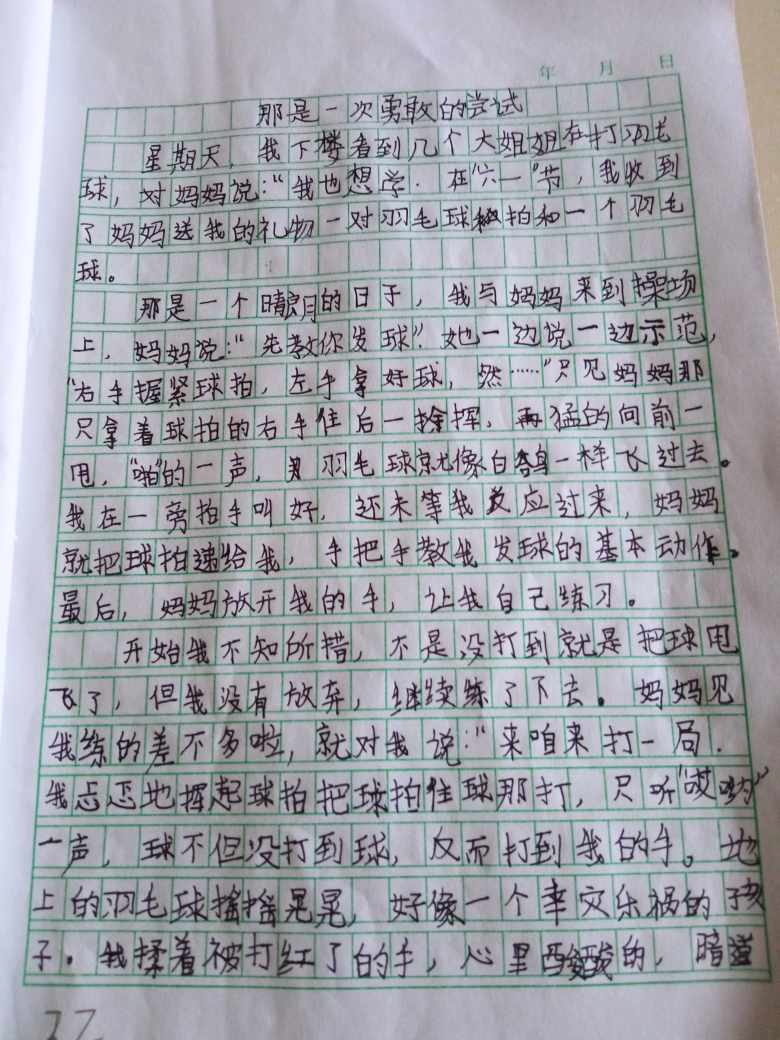 年 月 日
那是一次勇敢的尝试
星期天，我下楼看到几个大姐姐在打羽毛
球，对妈妈说：“我也想学．在“六一”节，我收到
了妈妈送我的礼物一对羽毛球拍和一个羽毛
球。
那是一个晴朗的日子，我与妈妈来到操场
上，妈妈说：“先教你发球”．她一边说一边示范，
“右手握紧球拍，左手拿好球，然……”只见妈妈那
只拿着球拍的右手住后一挥，再猛的向前一
甩，“啪”的一声，羽毛球就像白鸽一样飞过去。
我在一旁拍手叫好，还未等我反应过来，妈妈
就把球拍递给我，手把手教我发球的基本动作。
最后，妈妈放开我的手，让我自己练习。
开始我不知所措，不是没打到就是把球甩
飞了，但我没有放弃，继续练了下去．妈妈见
我练的差不多啦，就对我说：“来咱来打一局．
我忐忑地挥起球拍把球拍住球那打，只听“哎哟”
一声，球不但没打到球，反而打到我的手。地
上的羽毛球摇摇晃晃，好像一个幸灾乐祸的孩
子．我揉着被打红了的手，心里酸酸的，暗道
22